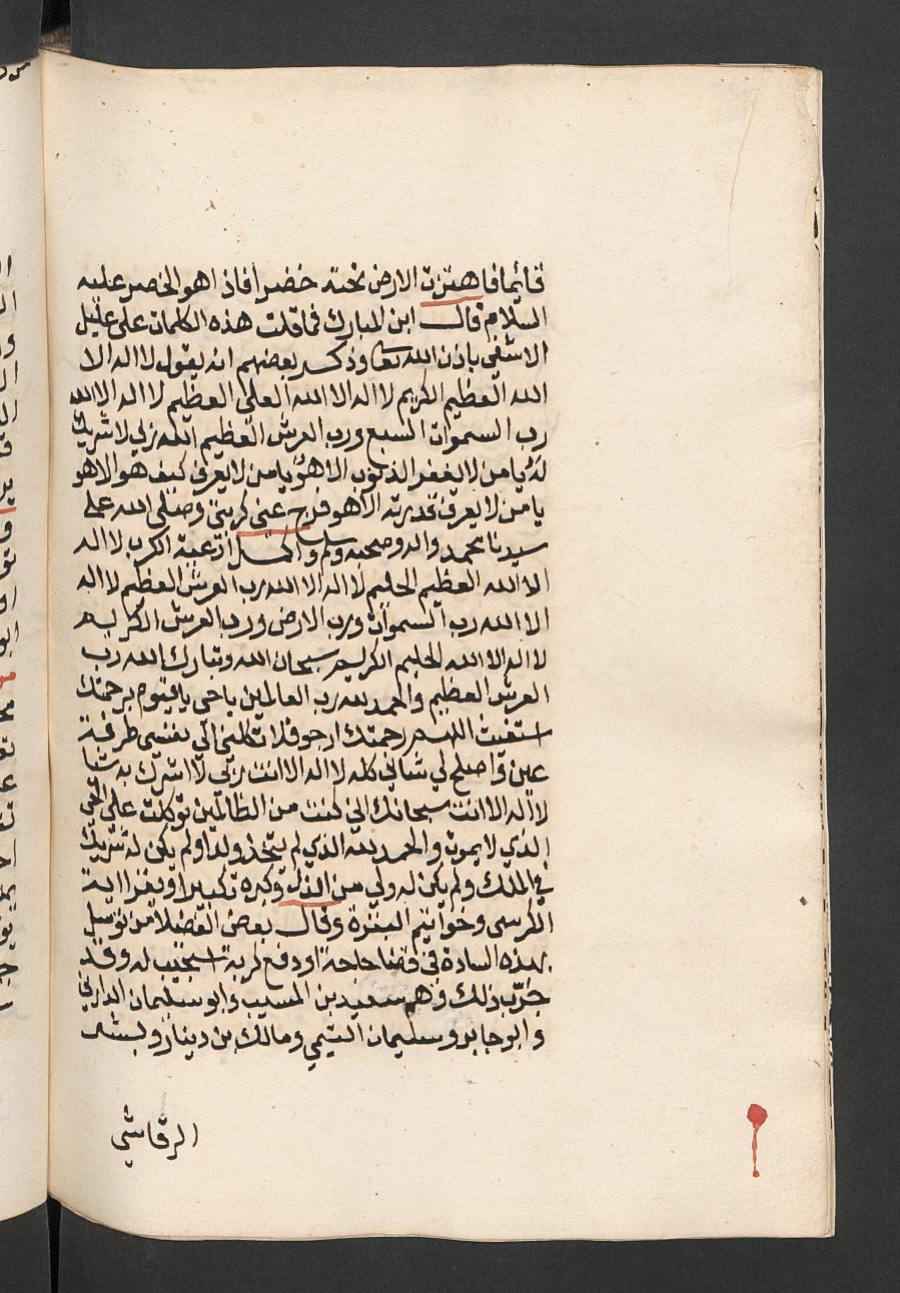 قائما فاهتزت الارض تحته خضرا فاذا هو الخضر عليه
السلام قال ابن المبارك فما قلت هذه الكلمات على عليل
الا شفى باذن الله تعا وذكر بعضهم انه يقول لا اله الا
الله العظيم الكريم لا اله الا الله العلى العظيم لا اله الا الله
رب السموات السبع ورب العرش العظيم الله ربي لا شريك
له يا من لا يغفر الذنوب الا هو يا من لا يعرف كيف هو الا هو
يا من لا يعرف قدرته الا هو فرج عني كربتي وصلى الله على
سيدنا محمد واله وصحبه وسلم ادعية الكرب لا اله
الا الله العظيم الحليم لا اله الا الله رب العرش العظيم لا اله
الا الله رب السموات ورب الارض ورب العرش الكريم
لا اله الا الله الحليم الكريم سبحان الله وتبارك الله رب
العرش العظيم والحمد لله رب العالمين يا حي يا قيوم برحمتك
استغيث اللهم رحمتك ارجو فلا تكلني الى نفسي طرفة
عين واصلح لي شاني كله لا اله الا انت ربي لا اشرك به شيا
لا اله الا انت سبحانك اني كنت من الظالمين توكلت على الحي
الذي لا يموت والحمد لله الذي لم يتخذ ولدا ولم يكن له شريك
في الملك ولم يكن له ولي من الذل وكبره تكبيرا ويقرا اية
الكرسي وخواتيم البقرة وقال بعض الفضلا من توسل
بهذه السادة في قضا حاجة او دفع كربة استجيب له وقد
جرب ذلك وهم سعيد بن المسيب وابو سليمان الداراني
وابو جابر وسليمان التيمي ومالك بن دينار و
الرقاشي